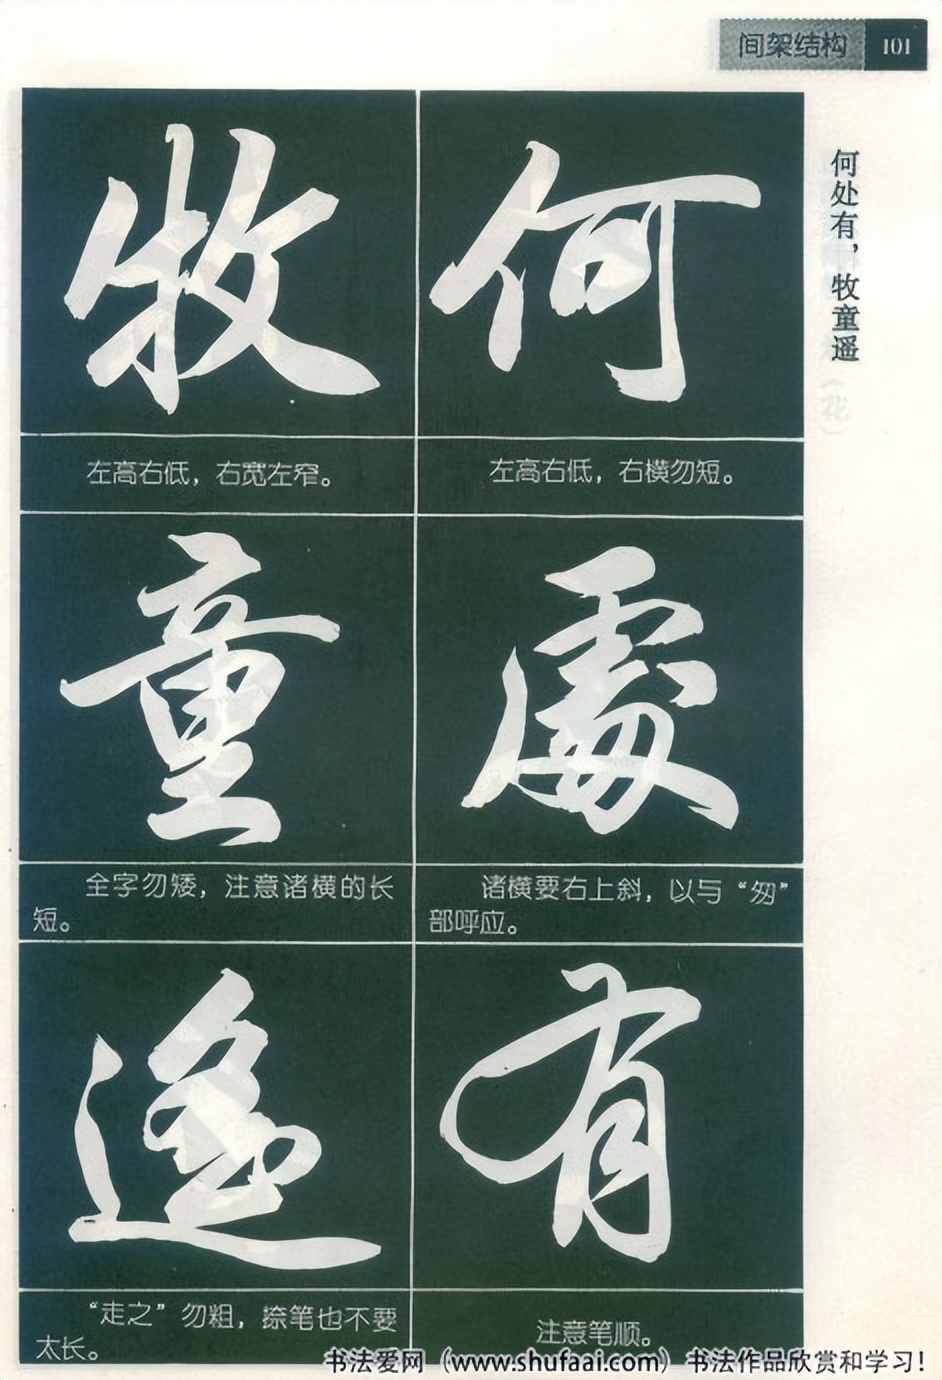 间架结构 101
何处有，牧童遥
（花）
何
左高右低，右横勿短。
處
诸横要右上斜，以与“匆”
部呼应。
有
注意笔顺。
牧
左高右低，右宽左窄。
童
全字勿矮，注意诸横的长
短。
遥
“走之”勿粗，捺笔也不要
太长。
书法爱网（www.shufaai.com）书法作品欣赏和学习！